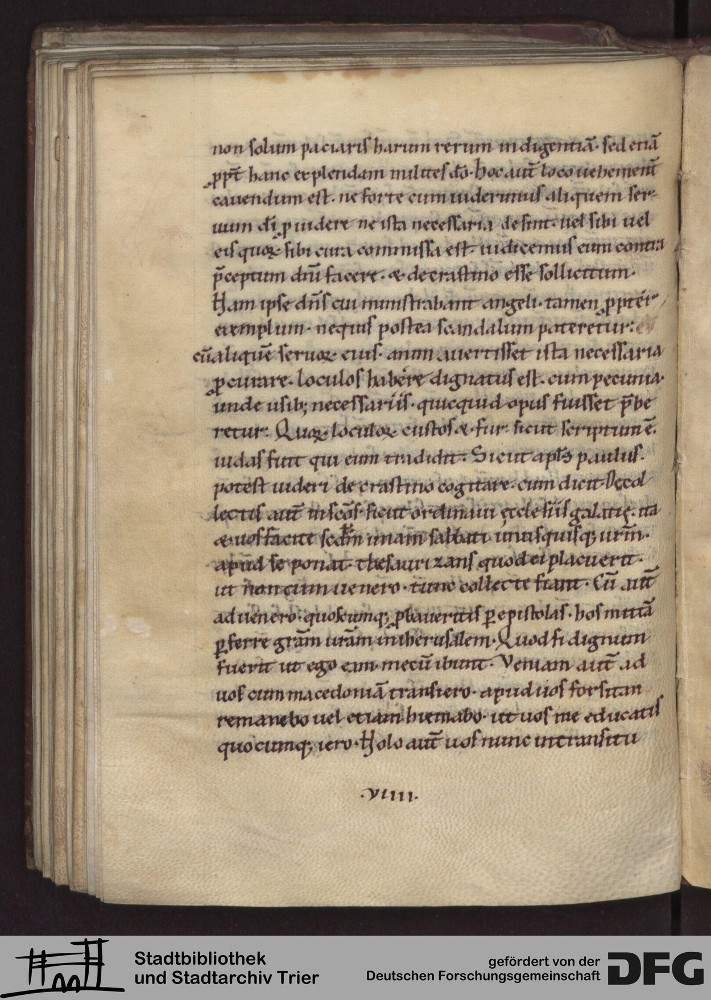 non solum paciaris harum rerum indigentiā. sed etiā
ꝓpt̄ hanc explendam milites dō. Hoc aut̄ loco uehement̄
cauendum est. ne forte cum uiderimus aliquem ser
uum dī ꝓuidere ne ista necessaria desint. uel sibi uel
eis quoꝝ sibi cura commissa est. iudicemus eum contra
p̄ceptum dn̄i facere. & de crastino esse sollicitum.
Nam ipse dn̄s cui ministrabant angeli. tamen ꝓpter
exemplum. nequis postea scandalum pateretur:
cū aliquē seruoꝝ eius. anim auertisset ista necessaria
ꝓcurare. loculos habere dignatus est. cum pecunia.
unde usib; necessariis. quicquid opus fuisset p̄be
retur. Quoꝝ loculoꝝ custos & fur. sicut scriptum ē.
iudas fuit qui eum tradidit. Sicut apl̄s paulus.
potest uideri de crastino cogitare. cum dicit. De col
lectis aut̄ in sc̄os. sicut ordinaui ęcclesiis galatię. ita
& uos facite scdm̄ unam sabbati unusquisq; ur̄m.
apud se ponat. thesaurizans quod ei placuerit.
ut non cum uenero. tunc collecte fiant. Cū aut̄
aduenero. quoscumq; ꝓbaueritis ꝑ epistolas. hos mittā
ꝑferre grām urām in iherusalem. Quod si dignum
fuerit ut ego eam mecū ibunt. Veniam aut̄ ad
uos cum macedoniā transiero. apud uos forsitan
remanebo uel etiam hiemabo. ut uos me educatis
quocumq; iero. Nolo aut̄ uos nunc in transitu
.VIIII.
Stadtbibliothek
und Stadtarchiv Trier
gefördert von der
Deutschen Forschungsgemeinschaft
DFG